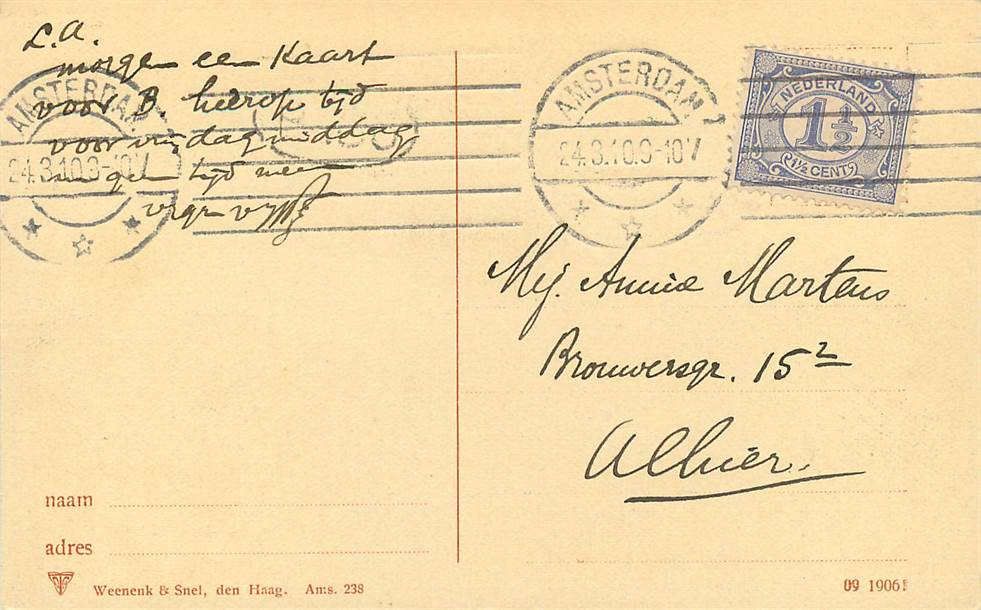 L.A.
morgen een Kaart
voor B. hierop tijd
voor vrijdagmiddag
tijd
AMSTERDAM
24.3.10.9-10V
AMSTERDAM 1
24.3.10.9-10V
NEDERLAND
1 1/2
1/2 CENT
Mej. Annie Martens
Brouwersgr. 15²
Alhier.
naam
adres
Weenenk & Snel, den Haag. Ams. 238
09 1906!